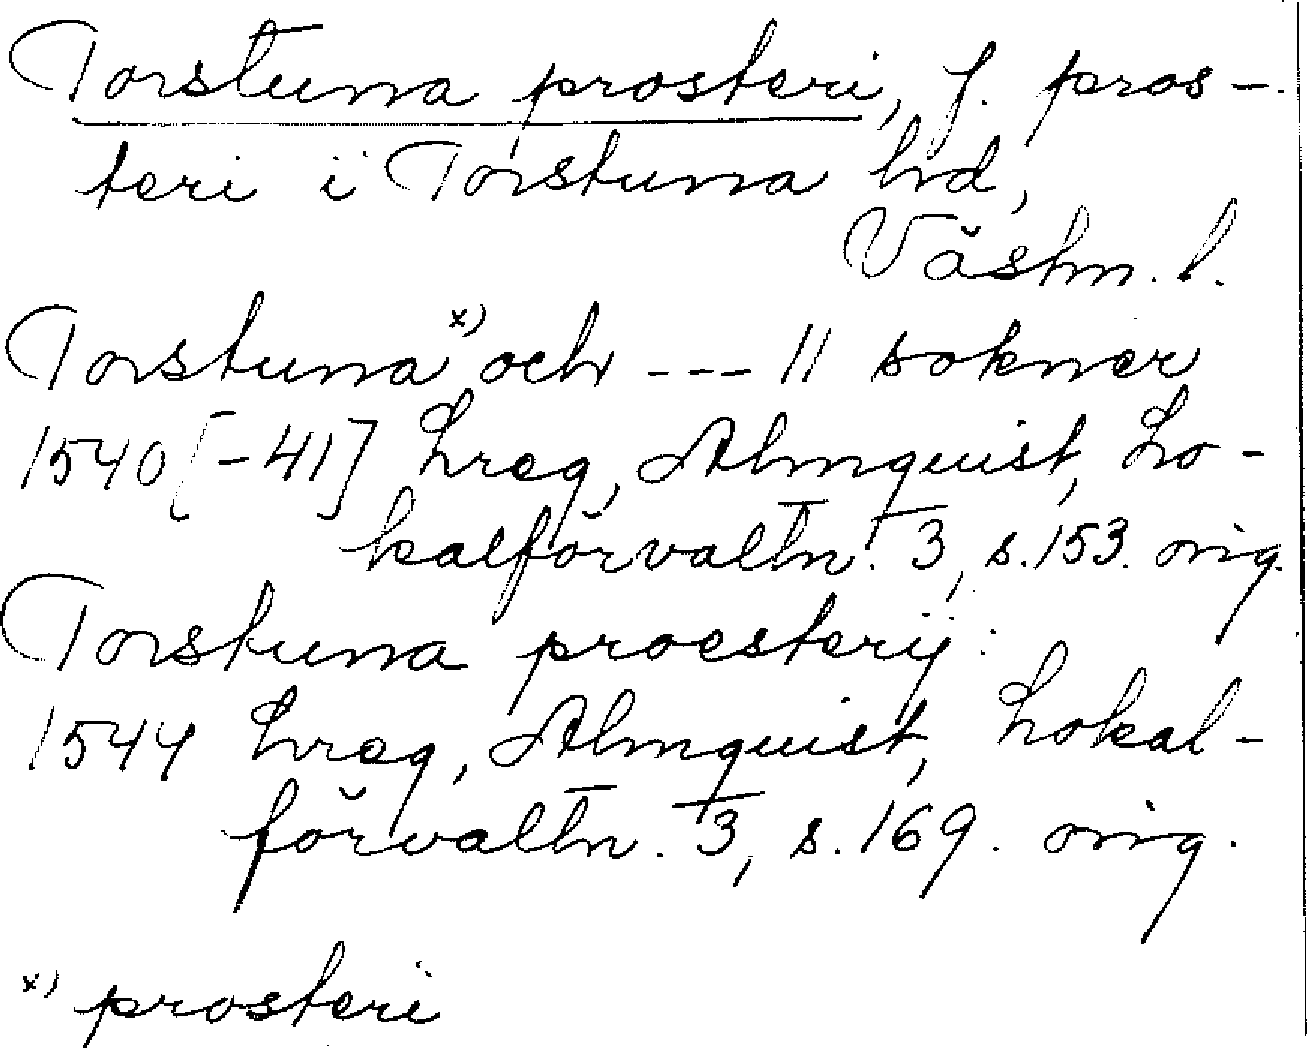 Torstuna prosteri, f. pros-
teri i Torstuna hd,
Västm. l.
Torstuna x) och --- 11 sokner
1540 [-41] Lreg, Almquist, Lo-
kalförvaltn. 3, s. 153. orig.
Torstuna proesterij:
1544 Lreg, Almquist, Lokal-
förvaltn. 3, s. 169. orig.
x) prosteri